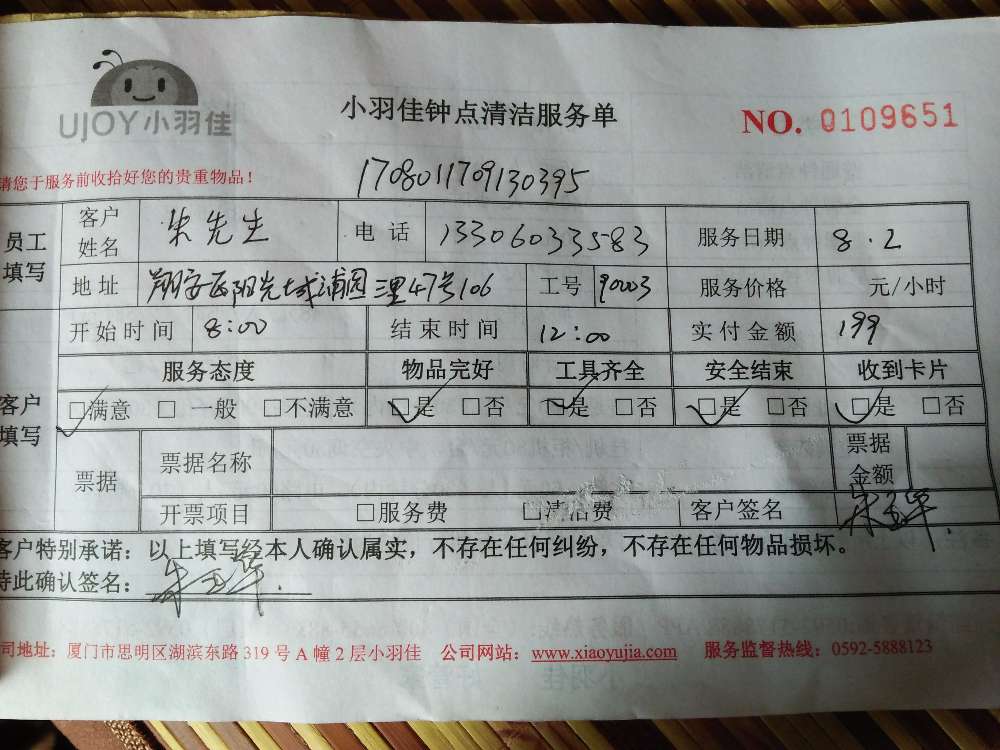 UJOY小羽佳
小羽佳钟点清洁服务单
NO. 0109651
请您于服务前收拾好您的贵重物品！
1708011709130395
员工填写 客户姓名 朱先生 电话 13306033583 服务日期 8.2
地址 翔安区阳光城浦园三里47号106 工号 90003 服务价格 元/小时
客户填写 开始时间 8:00 结束时间 12:00 实付金额 199
服务态度 物品完好 工具齐全 安全结束 收到卡片
☑满意 □一般 □不满意 ☑是 □否 ☑是 □否 ☑是 □否 ☑是 □否
票据 票据名称 票据金额
开票项目 □服务费 □清洁费 客户签名
客户特别承诺：以上填写经本人确认属实，不存在任何纠纷，不存在任何物品损坏。
特此确认签名：
公司地址：厦门市思明区湖滨东路 319 号 A 幢 2 层小羽佳 公司网站：www.xiaoyujia.com 服务监督热线：0592-5888123